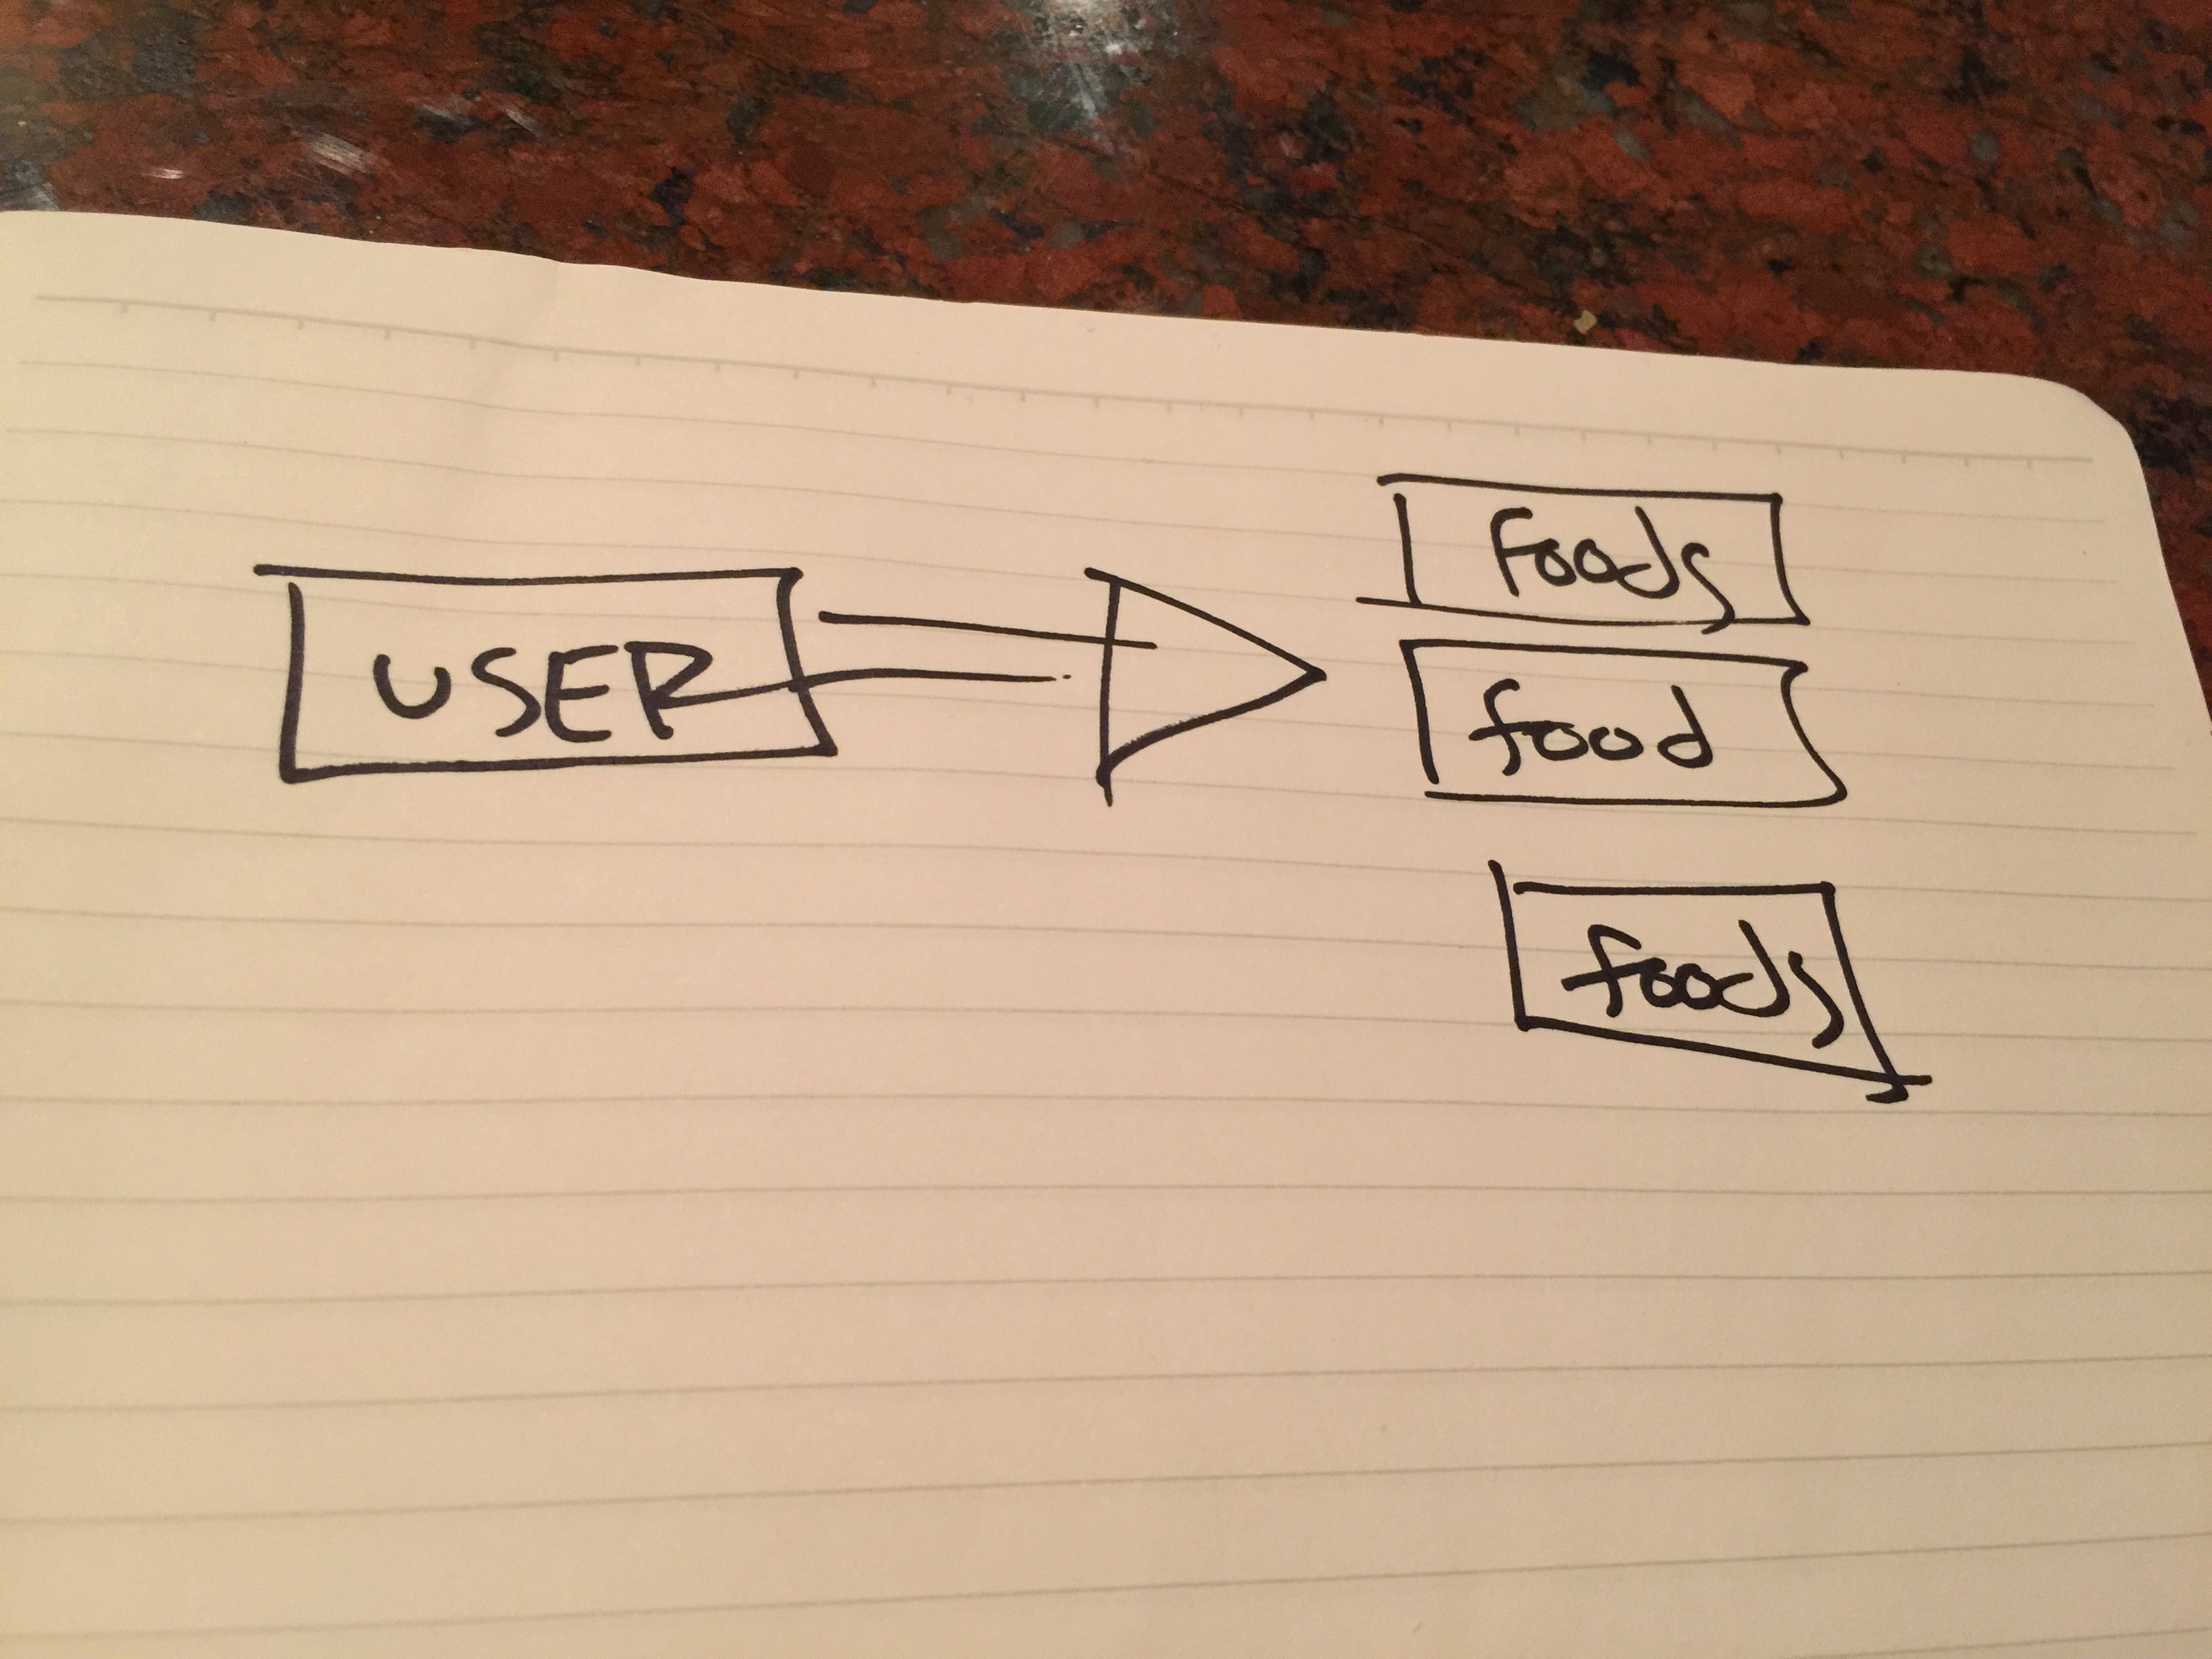 USER
Foods
food
foods